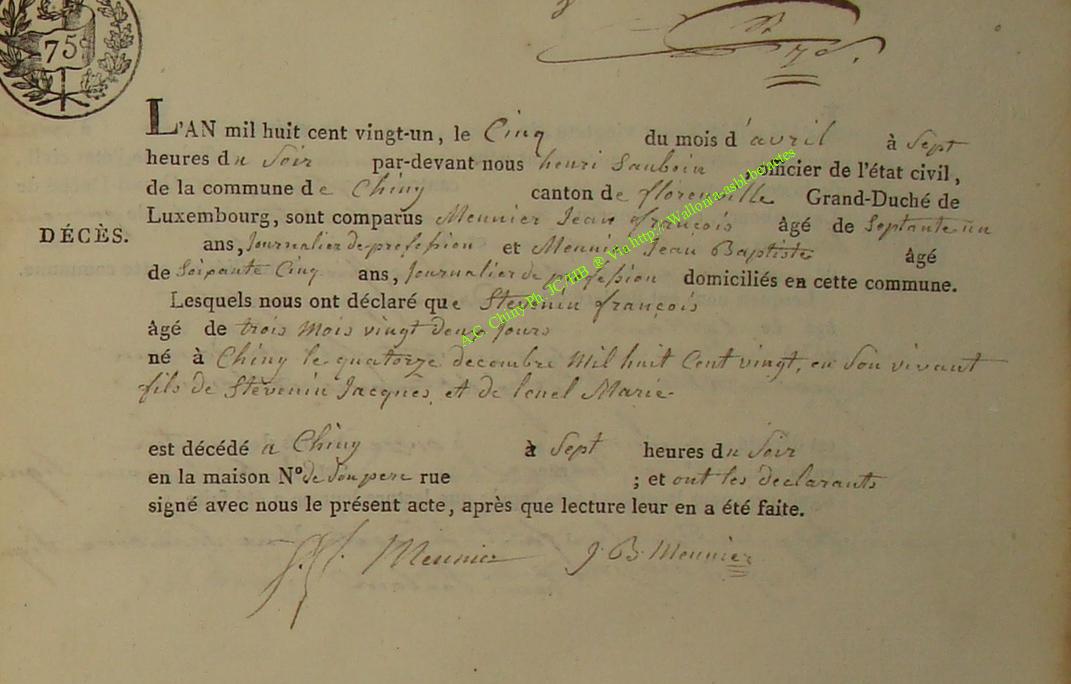 75
L'AN mil huit cent vingt-un, le Cinq du mois d'avril à Sept
heures du Soir par-devant nous henri Sauboin, officier de l'état civil,
de la commune de Chiny canton de florenville Grand-Duché de
Luxembourg, sont comparus Meunier Jean françois âgé de Septante un
DÉCÈS.
ans, Journalier de profession et Meunier Jean Baptiste âgé
de Soixante Cinq ans, Journalier de profession domiciliés en cette commune.
Lesquels nous ont déclaré que Stevenin françois
âgé de trois mois vingt deux Jours
né à Chiny le quatorze decembre Mil huit Cent vingt, en Son vivant
fils de Stevenin Jacques et de Marie
est décédé a Chiny à Sept heures du Soir
en la maison N° de Son pere rue ; et ont les declarants
signé avec nous le présent acte, après que lecture leur en a été faite.
Meunier J. B. Meunier
A.C. Chiny Ph. JC/HB ® Via http:// Wallonia-asbl-be/etes